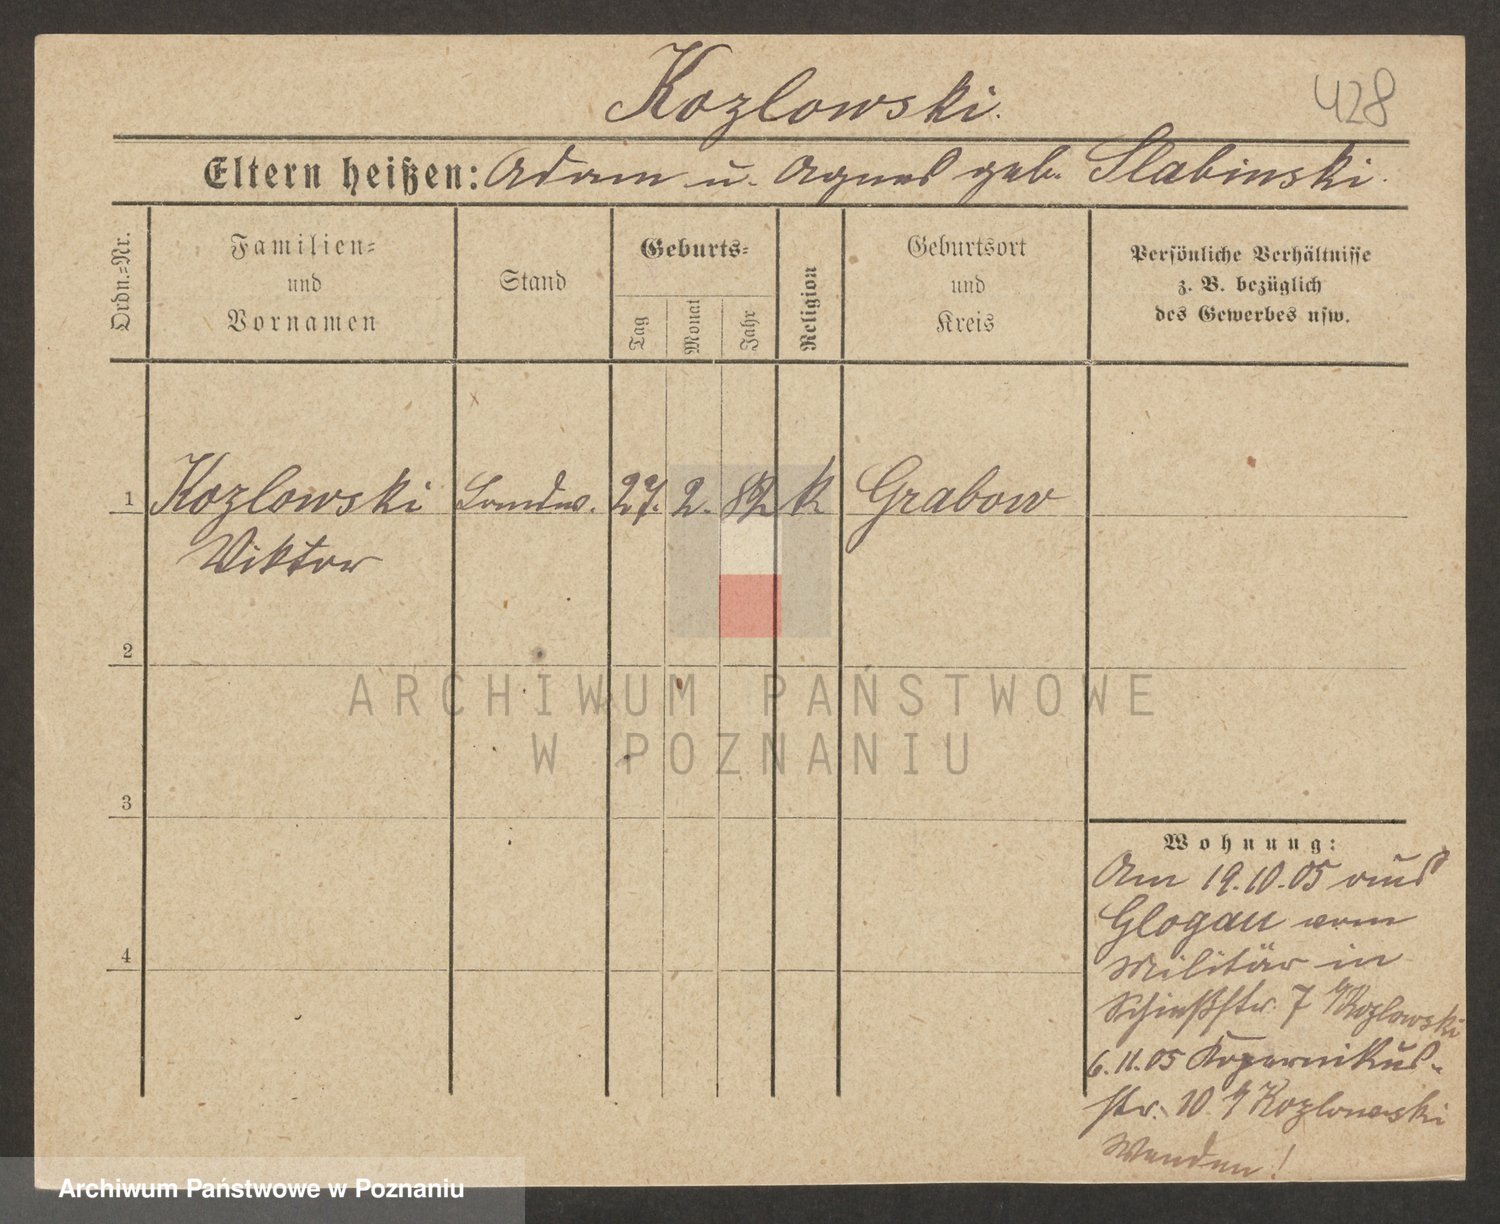 Kozlowski.
428
Eltern heißen: Adam u. Agnes geb. Slabinski.
Ordn.=Nr.
Familien=
und
Vornamen
Stand
Geburts=
Tag
Monat
Jahr
Religion
Geburtsort
und
Kreis
Persönliche Verhältnisse
z. B. bezüglich
des Gewerbes usw.
1 Kozlowski Landw. 27. 2. 82 k Grabow
Viktor
2
ARCHIWUM PAŃSTWOWE
W POZNANIU
3
4
Wohnung:
Am 19.10.05 aus
Glogau vom
Militär in
Schießstr. 7 Kozlowski
6.11.05 Kopernikus-
str. 10 Kozlowski
Wenden!
Archiwum Państwowe w Poznaniu